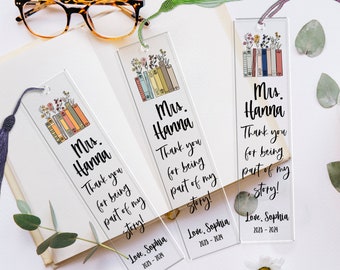 Mrs.
Hanna
Thank you
for being
part of my
story!
Love, Sophia
2023 - 2024
Mrs.
Hanna
Thank you
for being
part of my
story!
Love, Sophia
2023 - 2024
Mrs.
Hanna
Thank you
for being
part of my
story!
Love, Sophia
2023 - 2024